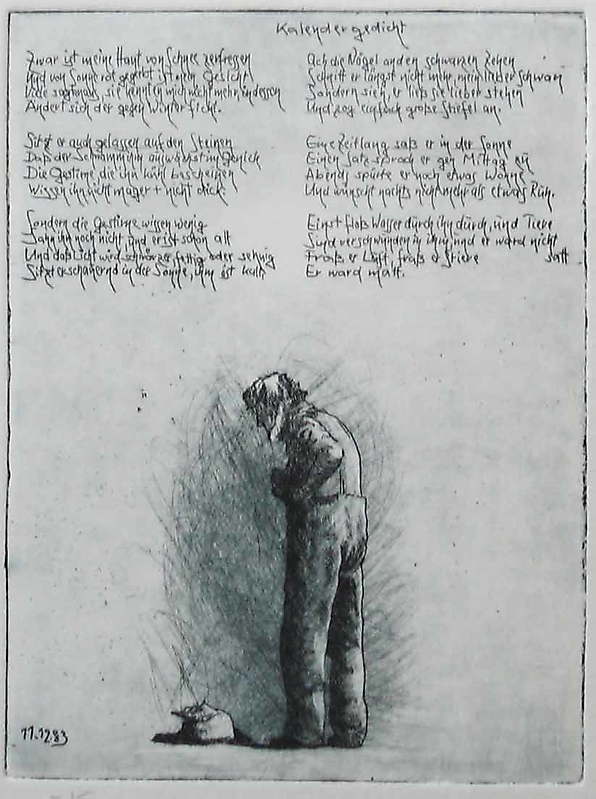 Kalendergedicht
Zwar ist meine Haut von Schnee zerfressen
Und von Sonne rot gegerbt ist mein Gesicht
Viele sagten aus, sie kennten mich nicht mehr, indessen
Ändert sich der gegen Winter ficht.
Sitzt er auch gelassen auf den Steinen
Daß der Schwamm ihm auswächst im Genick
Die Gestirne, die ihn kühl bescheinen
Wissen ihn nicht mager + nicht dick.
Sondern die Gestirne wissen wenig
Sahn ihn noch nicht, und er ist schon alt
Und das Licht wird schwärzer, fettig oder sehnig
Sitzt erschauernd in der Sonne, ihm ist kalt.
Ach die Nägel an den schwarzen Zehen
Schnitt er längst nicht mehr, mein lieber Schwan
Sondern sieh, er ließ sie lieber stehen
Und zog einfach große Stiefel an.
Eine Zeitlang saß er in der Sonne
Einen Satz sprach er gen Mittag
Abends spürte er noch etwas Wonne
Und wünscht nachts nicht mehr als etwas Ruh.
Einst floß Wasser durch ihn durch, und Tiere
Sind verschwunden in ihm, und er ward nicht
Fraß er Luft, fraß er Stiere satt
Er ward matt.
11.12 83